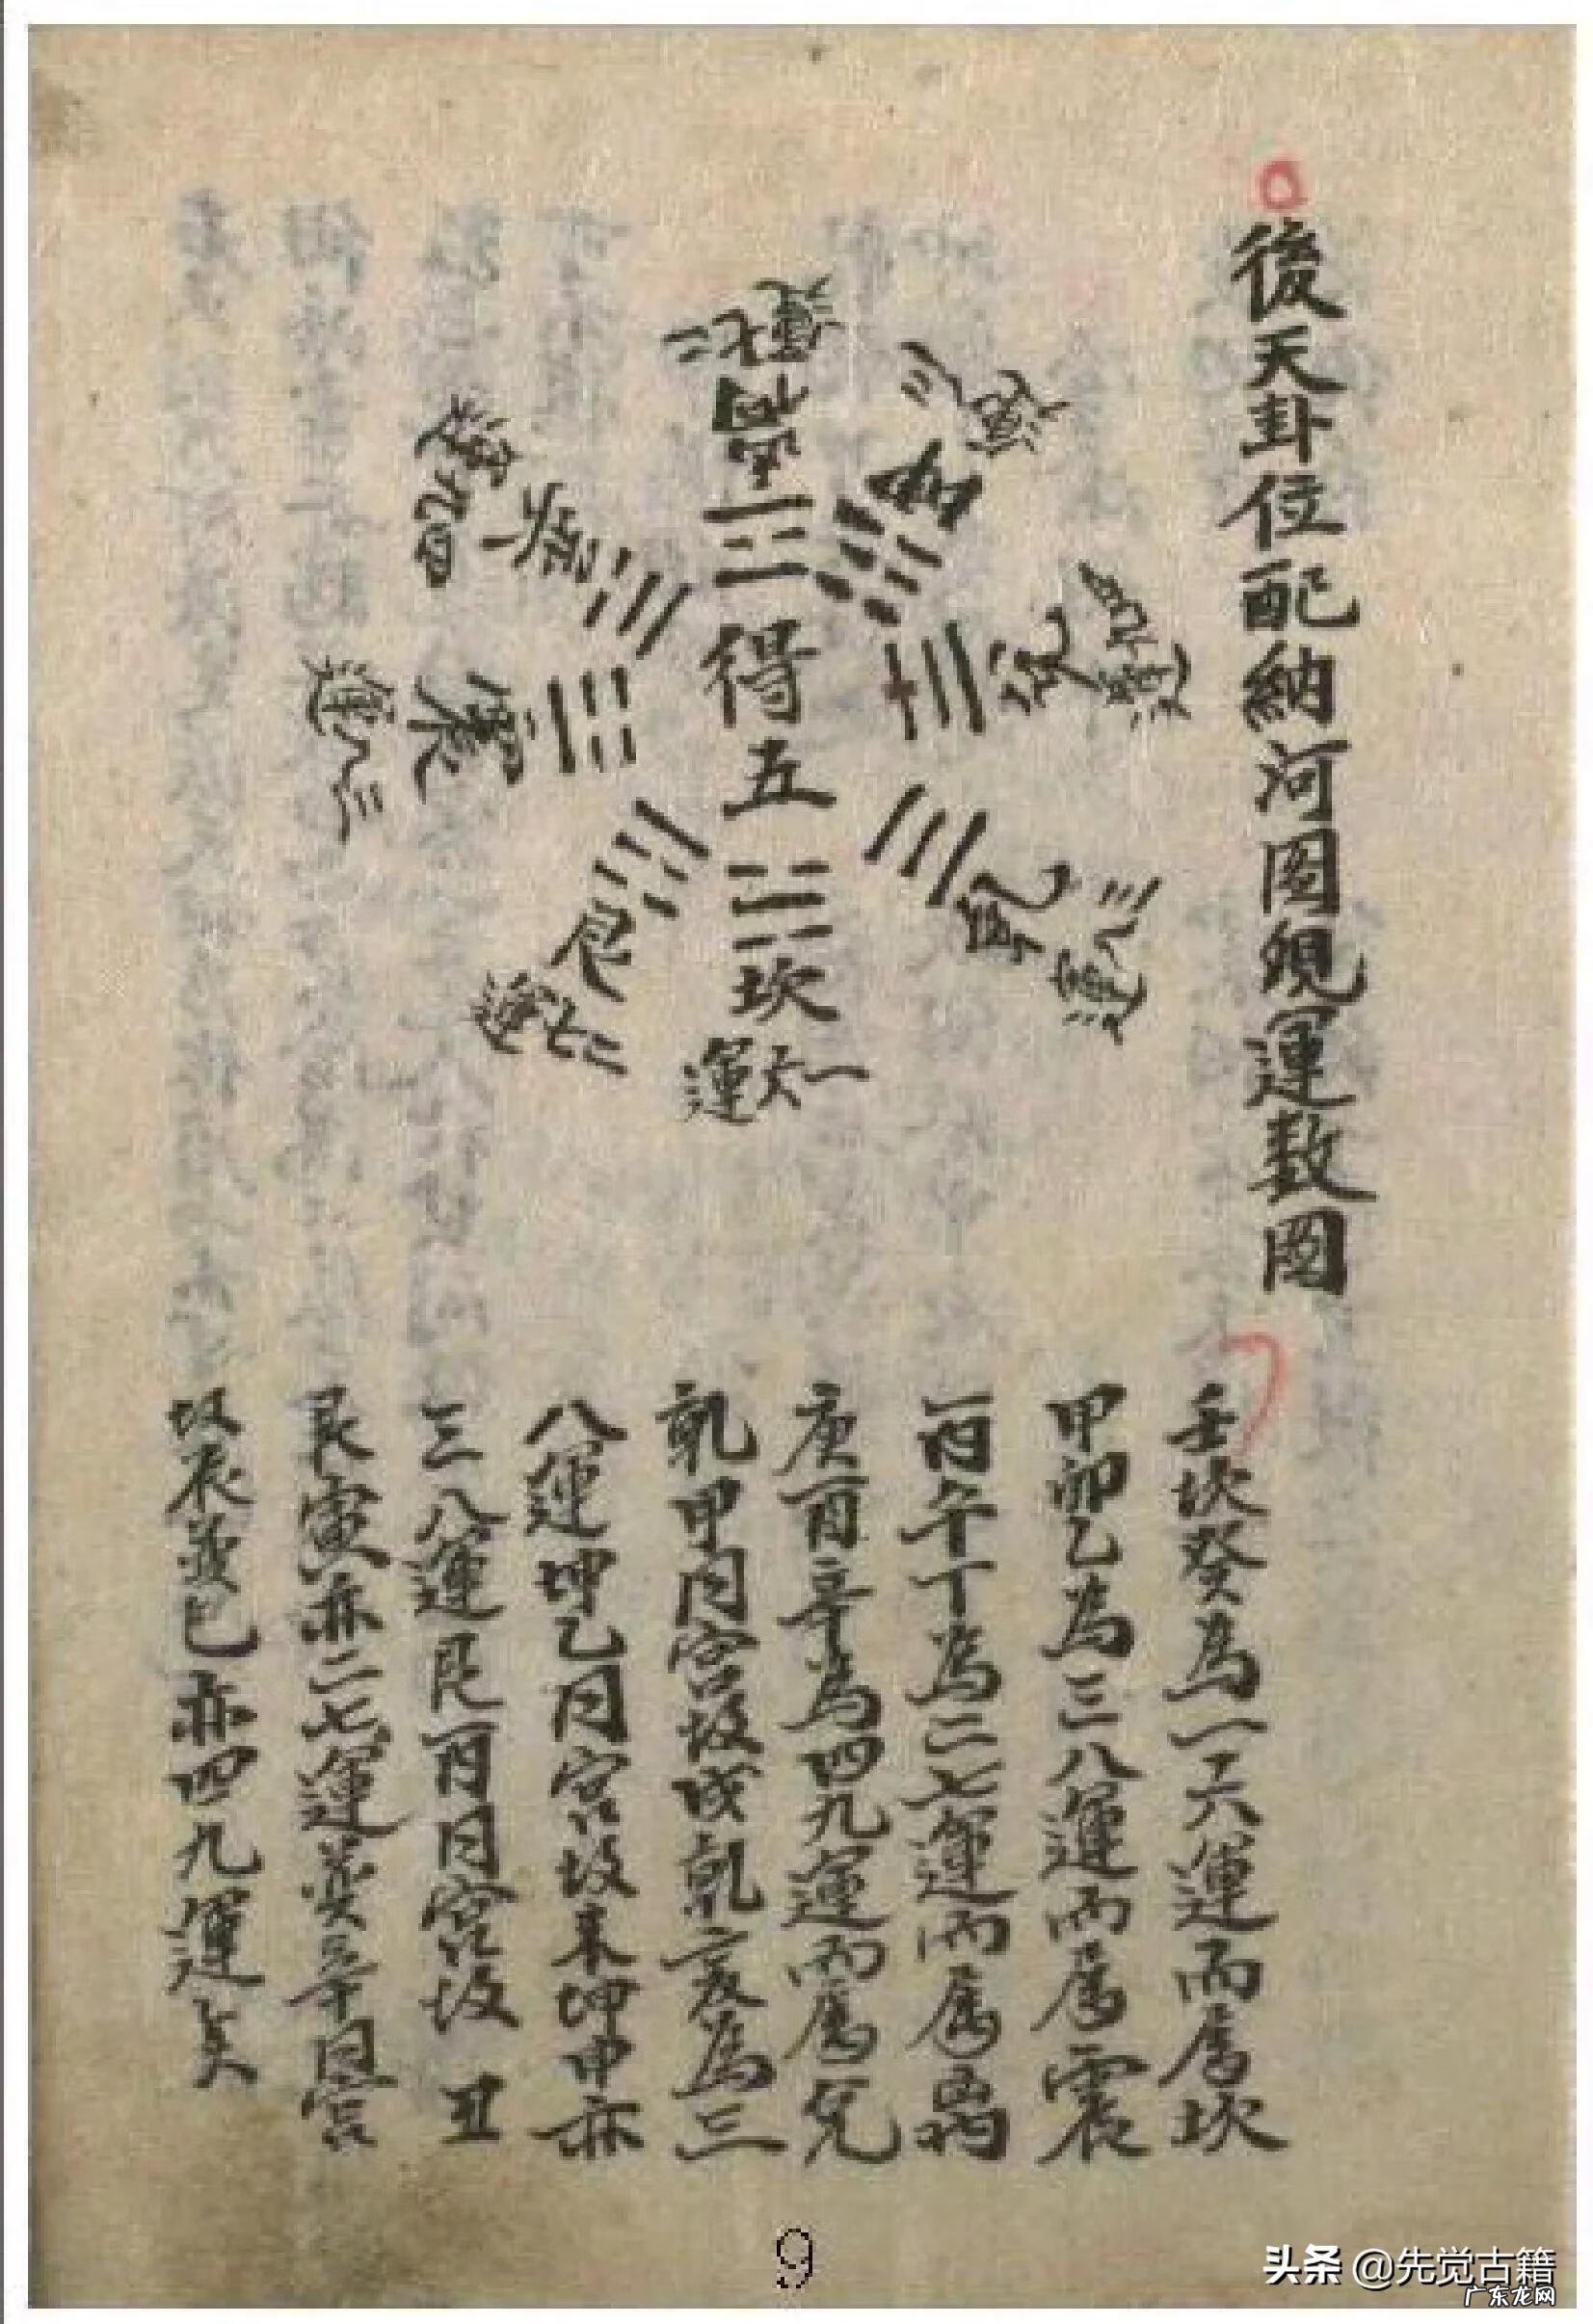 後天卦位配納河图現運数图
離
二七運
坤
三八運
兌
四九運
乾
三八運
坎
一六運
艮
二七運
震
三八運
巽
四九運
得五
壬坎癸為一六運而属坎
甲卯乙為三八運而属震
丙午丁為二七運而属離
庚酉辛為四九運而属兌
乾甲同宮故戌乾亥為三
八運坤乙同宮故未坤申亦
三八運艮丙同宮故 丑
艮寅亦二七運巽辛同宮
故辰巽巳亦四九運矣
9
头条 @先觉古籍
广东龙网